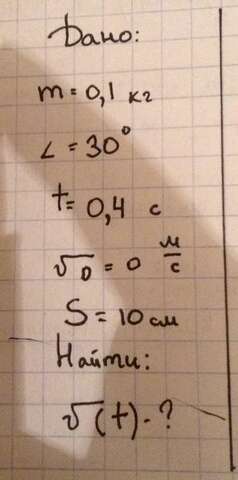 Дано:
m = 0,1 кг
∠ = 30°
t = 0,4 с
v₀ = 0 м/с
S = 10 см
Найти:
v(t) - ?